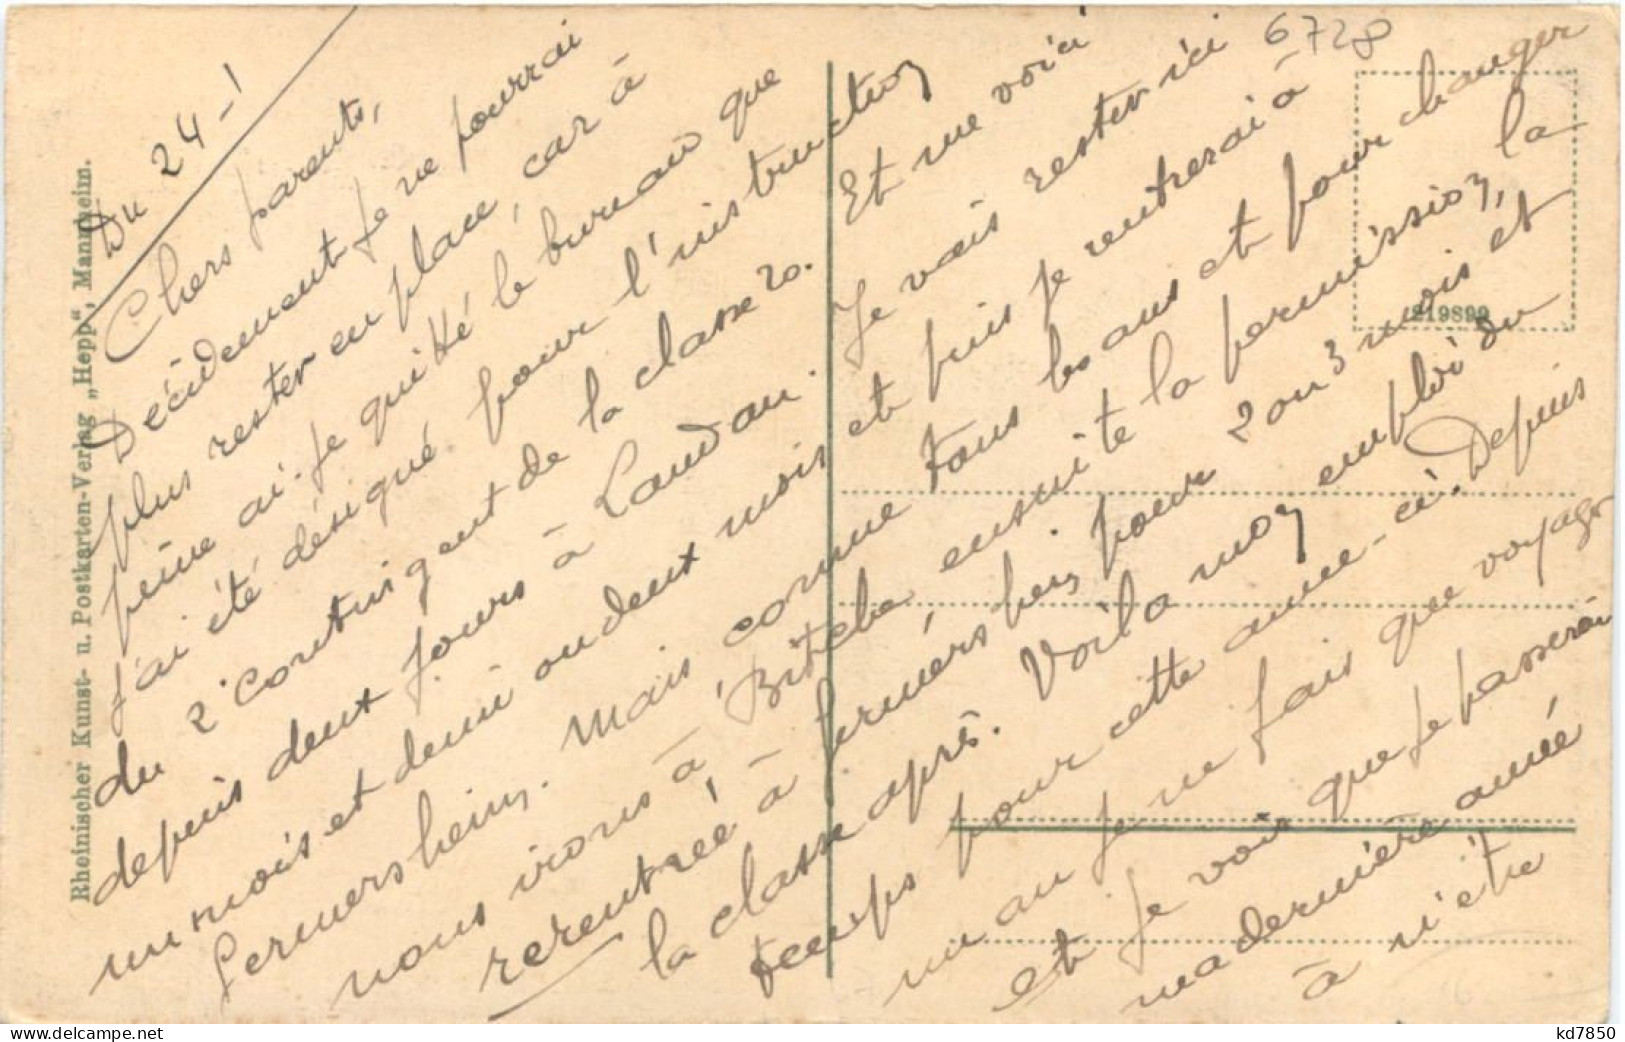 Du 24-1
Chers parents,
Décidement je ne pourrai
plus rester en place, car à
peine ai-je quitté le bureau que
j'ai été désigné pour l'instruction
du 2e Contingent de la classe 20.
depuis deux jours à Landau.
un mois et demi ou deux mois
Germersheim. Mais comme
nous irons à Bitche ensuite la
rerentrée à Germersheim, pour
la classe après. Voilà mon emploi du
temps pour cette année-ci. Depuis
un an je ne fais que voyager
et je vois que je passerai
ma dernière année
à n'être
Et me voici
Je vais rester ici
et puis je rentrerai à
tous les ans et pour changer
permission, la
2 ou 3 mois et
6728
219899
Rheinischer Kunst- u. Postkarten-Verlag „Hepp“, Mannheim.
www.delcampe.net
kd7850